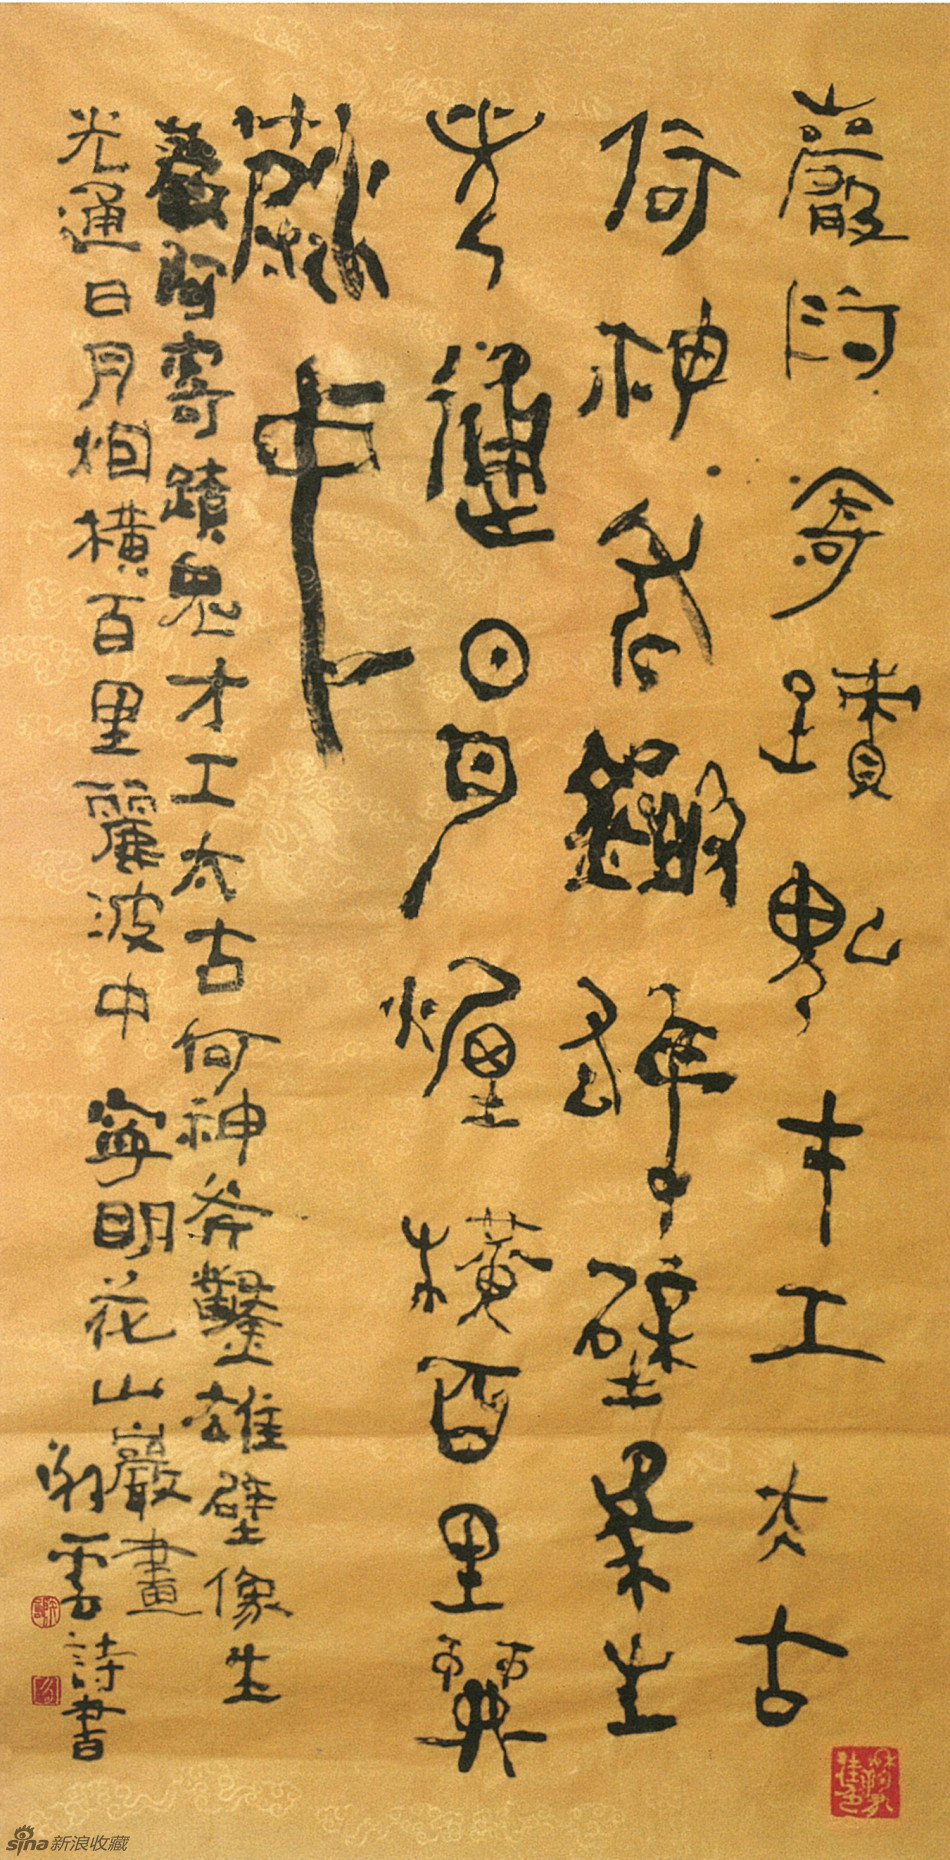 巖阿寄蹟鬼才工太古
何神斧鑿雄壁象生
光通日月煙橫百里麗
波中
巖阿寄蹟鬼才工太古何神斧鑿雄壁像生
光通日月烟橫百里麗波中 寧明花山巖畫
雲詩書
sina新浪收藏